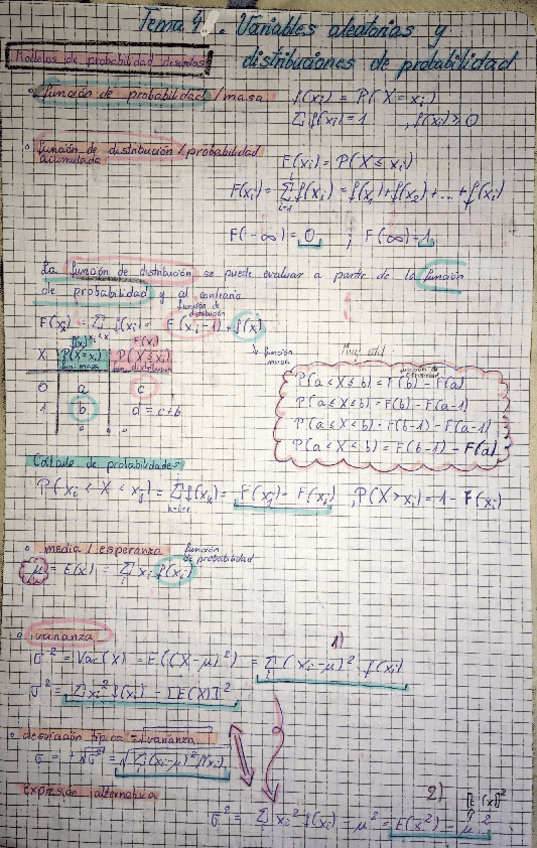 Tema 4. Variables aleatorias y
distribuciones de probabilidad
Modelos de probabilidad discretos
función de probabilidad / masa f(xi) = P(X = xi)
Σ f(xi) = 1 , f(xi) ≥ 0
función de distribución / probabilidad
acumulada
F(xi) = P(X ≤ xi)
F(xi) = Σ f(xi) = f(x1) + f(x2) + ... + f(xi)
i=1
F(-∞) = 0 ; F(∞) = 1
La función de distribución se puede evaluar a partir de la función
de probabilidad y al contrario
función de
distribución
F(xi) = Σ f(xi) = F(xi-1) + f(xi)
función
masa
f(xi) F(xi)
X P(X=xi) P(X≤xi)
0 a c
1 b d = c+b
P(a < X ≤ b) = F(b) - F(a)
P(a ≤ X ≤ b) = F(b) - F(a-1)
P(a ≤ X < b) = F(b-1) - F(a-1)
P(a < X < b) = F(b-1) - F(a)
Cálculo de probabilidades
P(xi < X < xj) = Σ f(xk) = F(xj) - F(xi) , P(X > xi) = 1 - F(xi)
k=i+1
media / esperanza función
de probabilidad
μ = E(x) = Σ xi f(xi)
i
varianza
1)
σ² = Var(X) = E((X-μ)²) = Σ (xi-μ)² · f(xi)
σ² = Σ xi² f(xi) - [E(X)]²
desviación típica = √varianza
σ = +√σ² = √Σ(xi-μ)² f(xi)
expresión alternativa
2) [E(x)]²
σ² = Σ xi² f(xi) - μ² = E(x²) - μ²